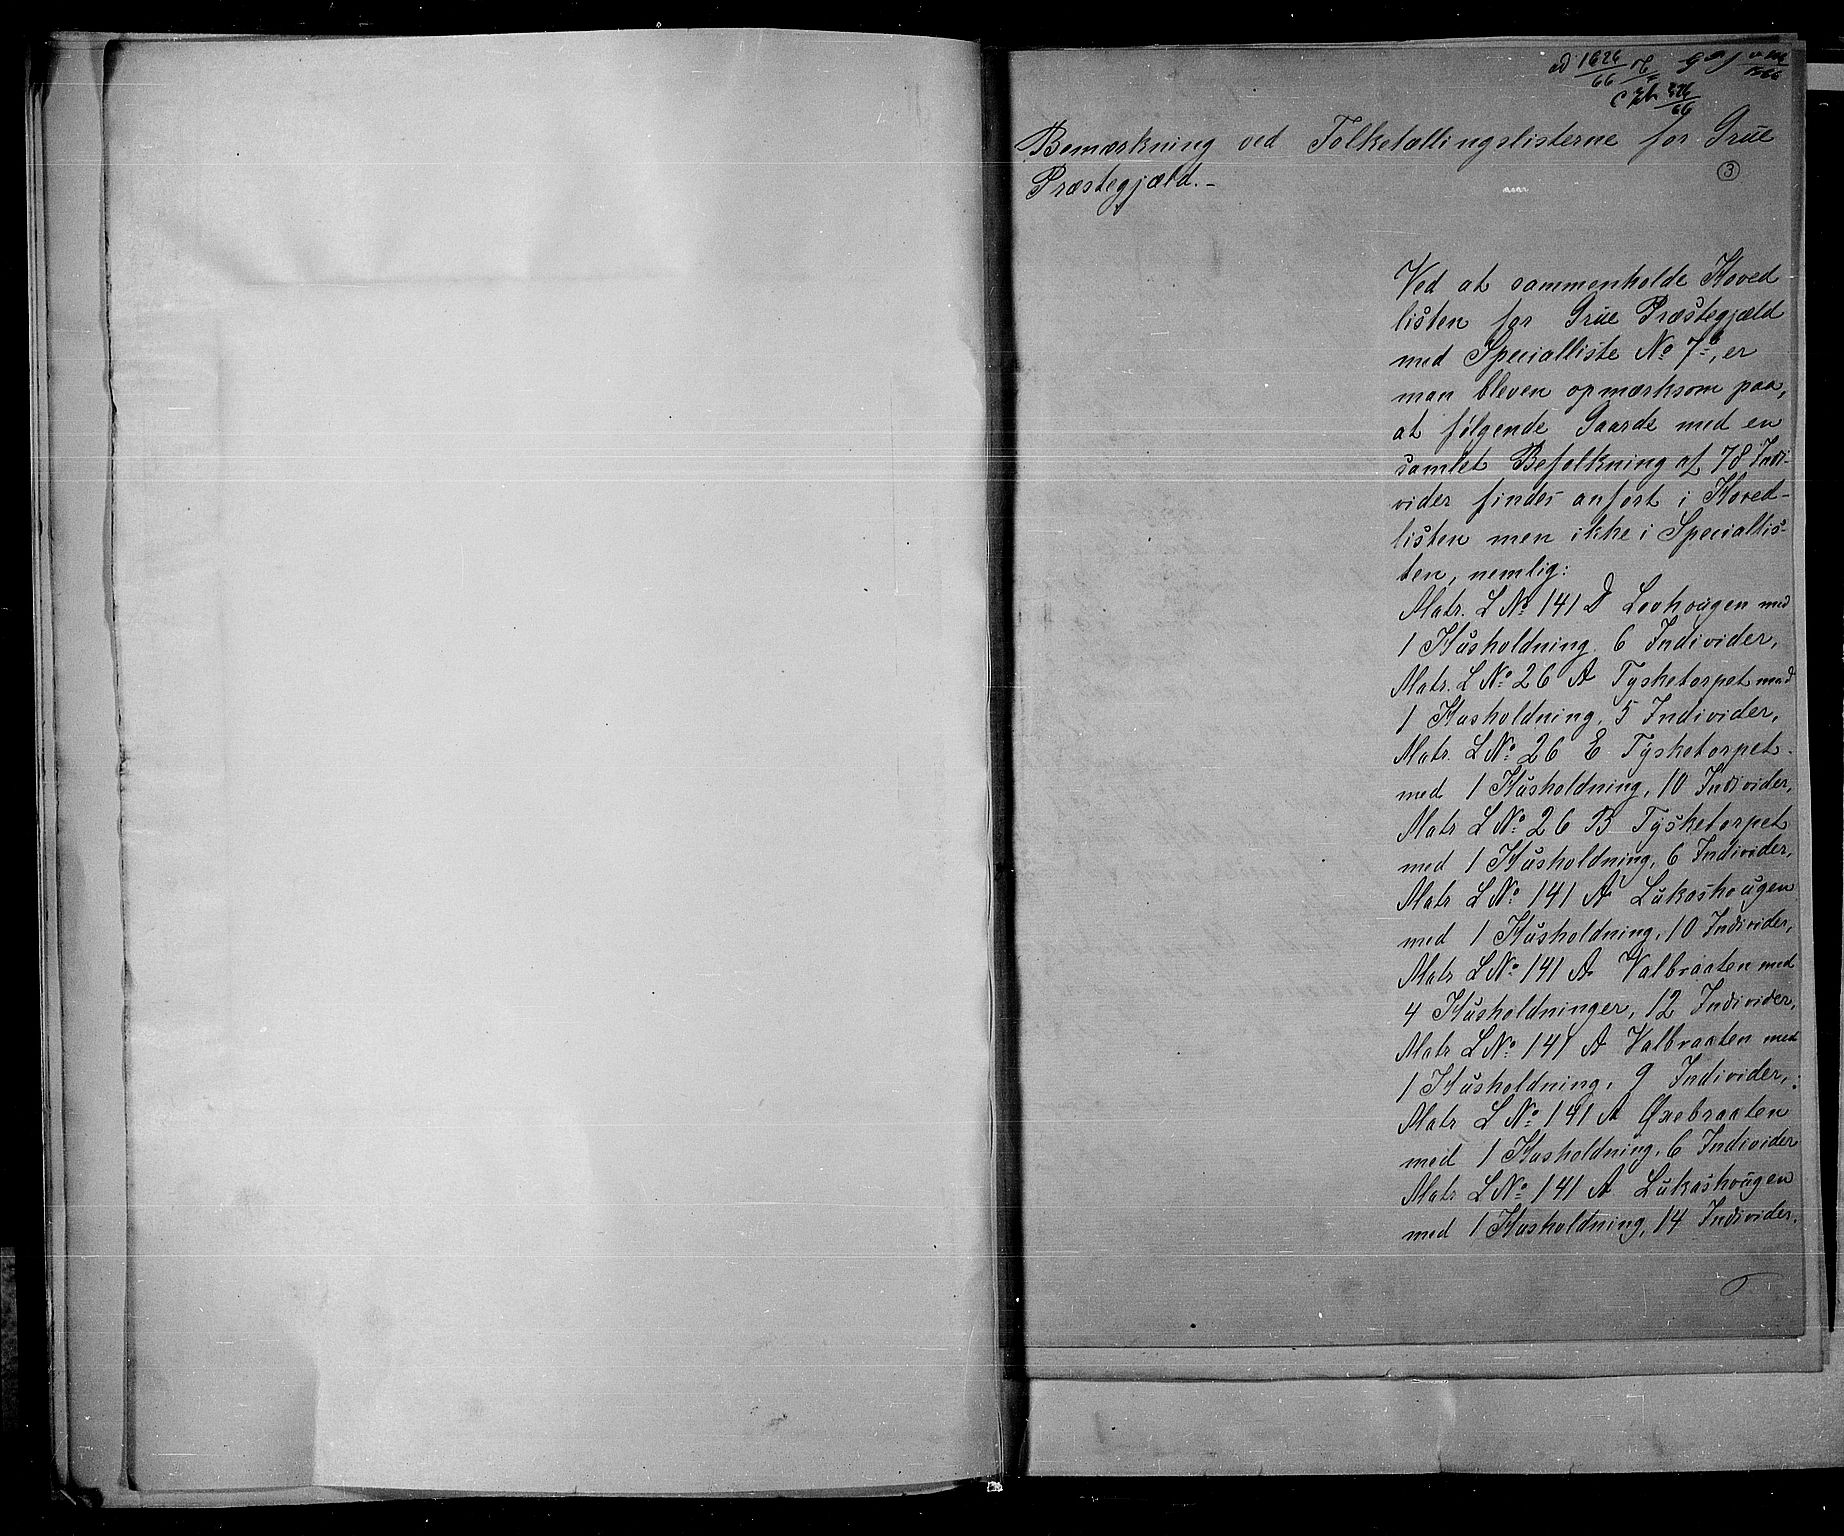 ad 1626/66
326/66
Bemærkning ved Folketællingslisterne for Grue
3
Præstegjæld.-
Ved at sammenholde Hoved
listen for Grue Præstegjæld
med Specialliste No 7b, er
man bleven opmærksom paa,
at følgende Gaarde med en
samlet Befolkning af 78 Indi-
vider findes anført i Hoved-
listen men ikke i Speciallis-
ten, nemlig:
Matr. L No 141 D Lovhougen med
1 Husholdning. 6 Individer,
Matr. L No 26 A Tysketorpet med
1 Husholdning, 5 Individer,
Matr. L No 26 E Tysketorpet
med 1 Husholdning, 10 Individer,
Matr L No 26 B Tysketorpet
med 1 Husholdning, 6 Individer,
Matr L No 141 A Lukashougen
med 1 Husholdning, 10 Individer,
Matr L No 141 A Valbraaten med
4 Husholdninger, 12 Individer,
Matr L No 141 A Valbraaten med
1 Husholdning, 9 Individer,
Matr L No 141 A Øxebraaten
med 1 Husholdning, 6 Individer
Matr L No 141 A Lukashougen
med 1 Husholdning, 14 Individer.